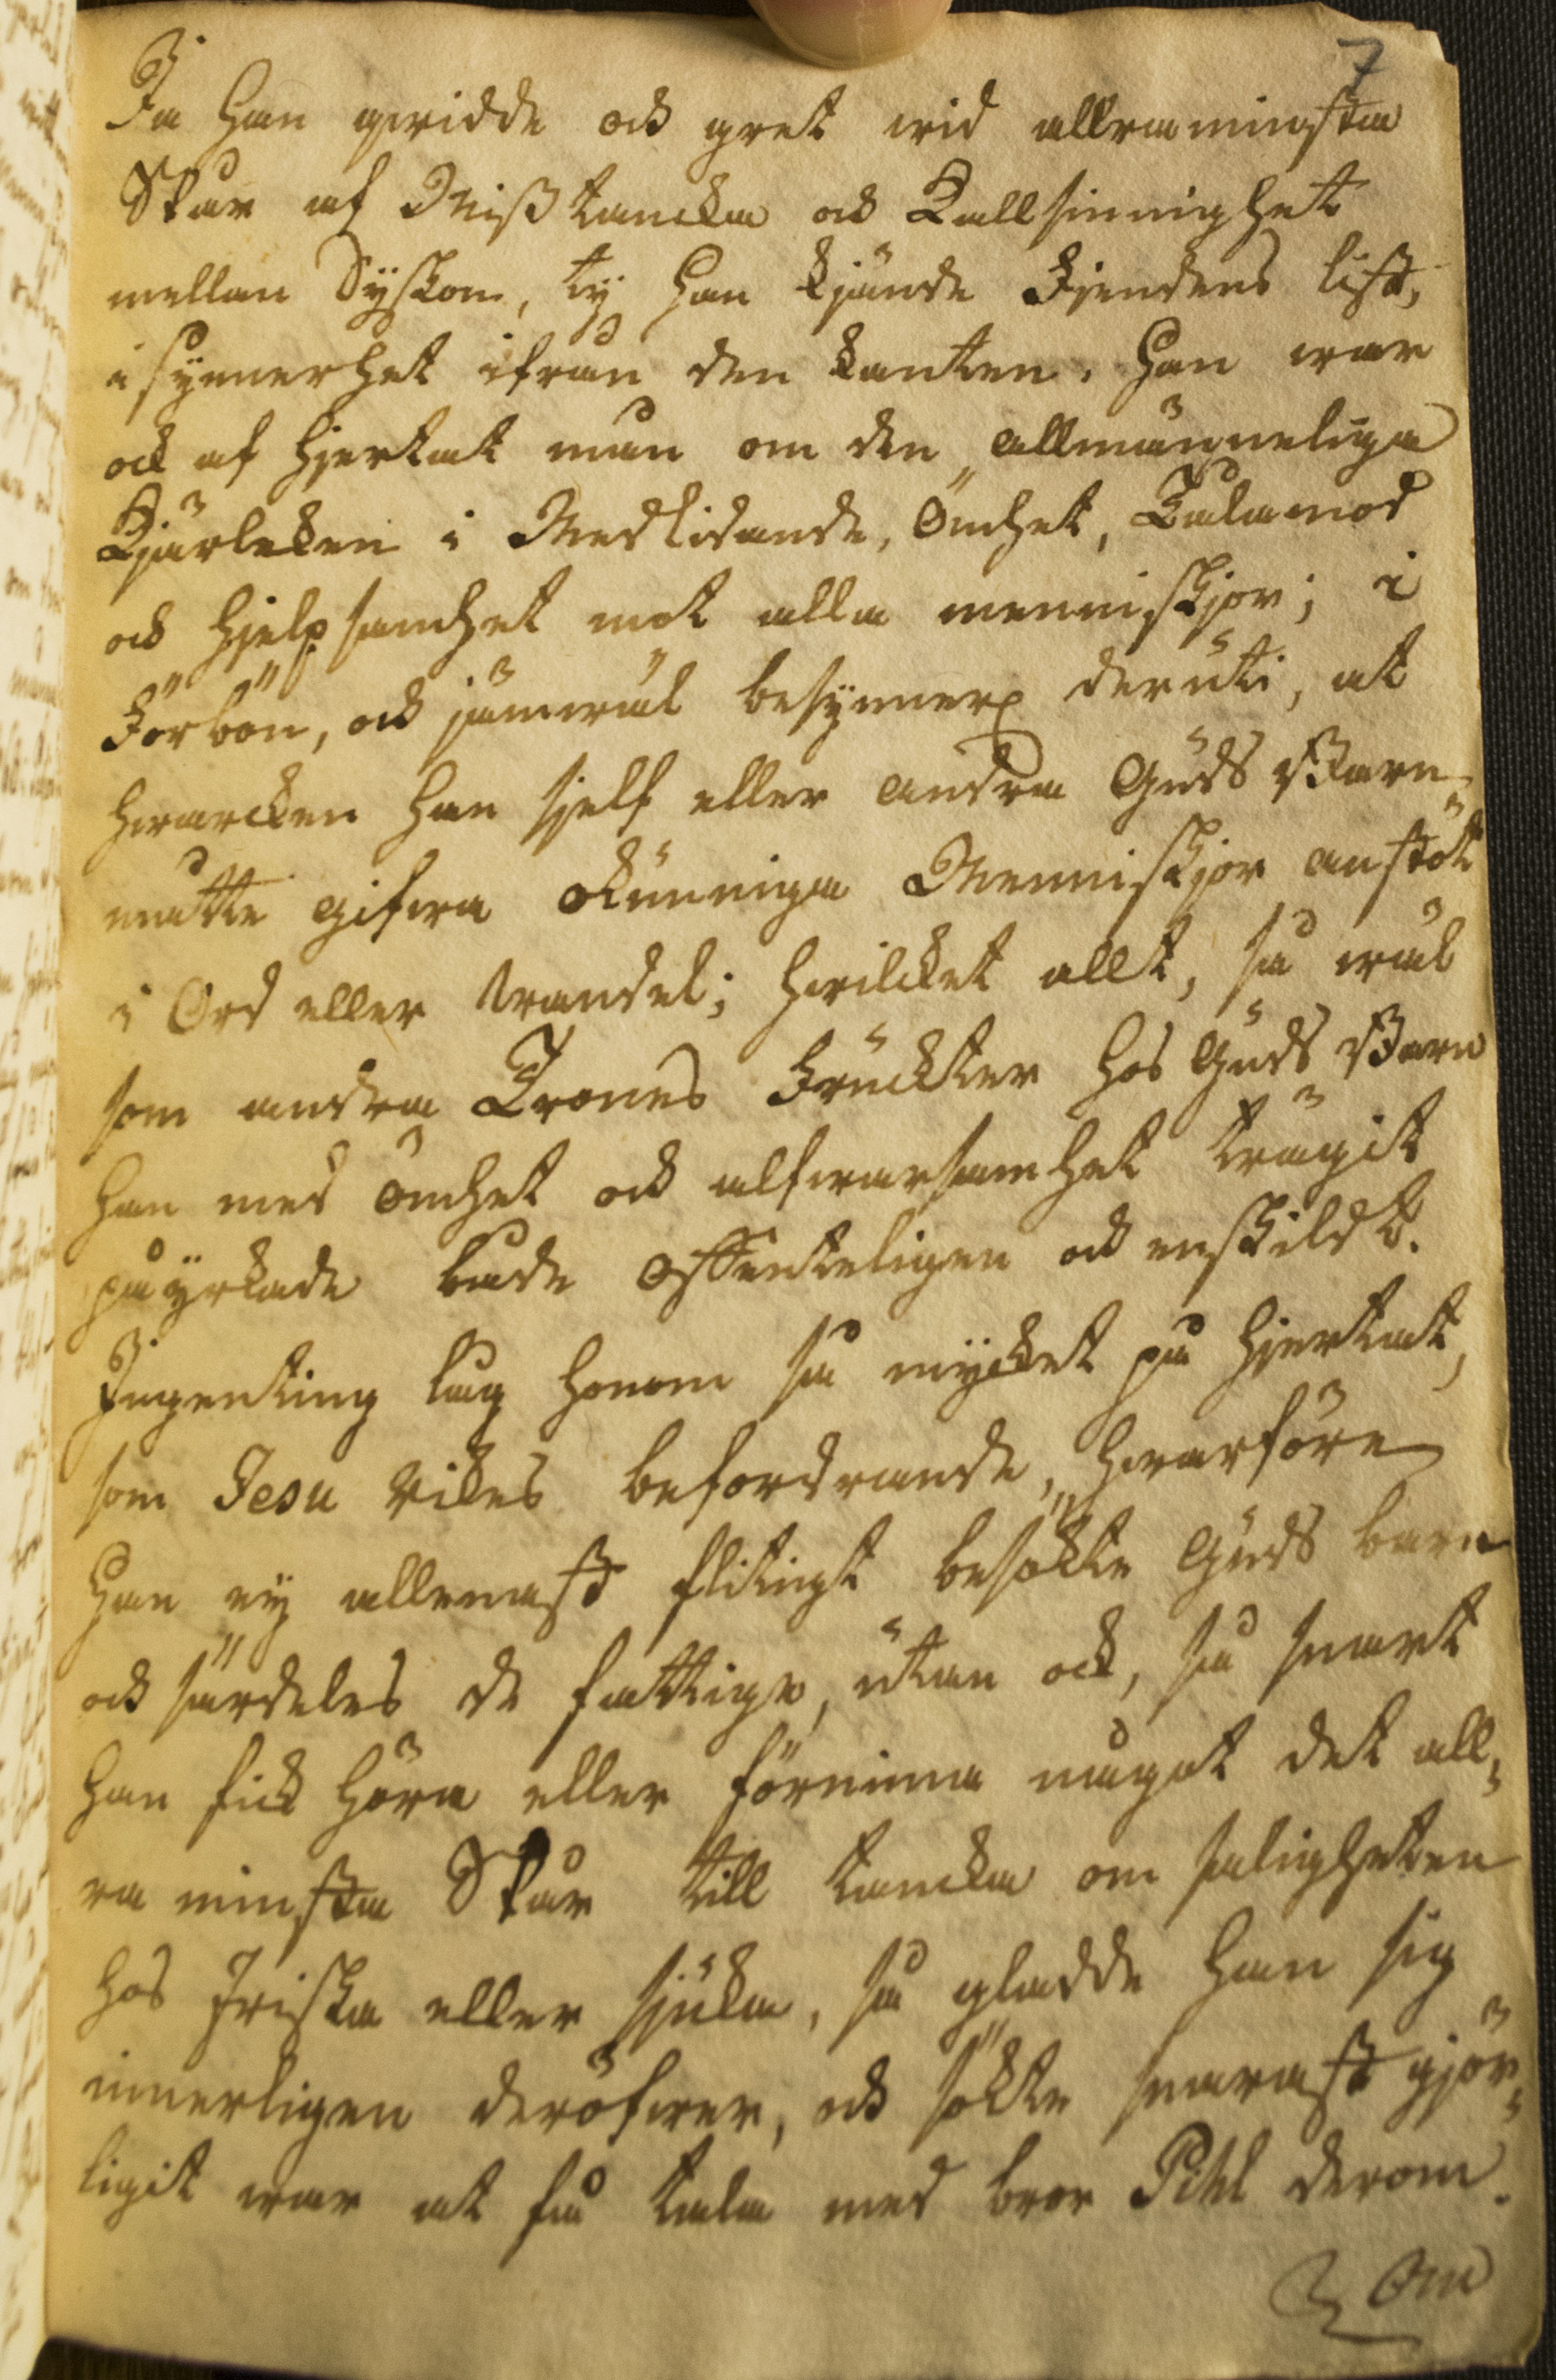 7
Ja han qwidde och gret wid allraminsta
Spår af Misstancka och Kallsinnighet
mellan Syskon, ty han kjände Fiendens list,
i synnerhet ifrån den kanten. Han war
ock af hjertat mån om den allmänneliga
Kjärleken i Medlidande, Ömhet, Tålamod
och hjelpsamhet mot alla menniskjor; i
Förbön, och jämwäl besynnerl. deruti, at
hwarcken han sjelf eller andra Guds Barn
måtte gifwa okunniga Menniskjor anstöt
i Ord eller wandel; hwilcket allt, så wäl
som andra Trones Fruckter hos Guds Barn
han med ömhet och alfwarsamhet trägit
påyrkade både offenteligen och enskildt.
Ingenting låg honom så mycket på hjertat,
som Jesu Rikes befordrande, hwarföre
han ey allenast flitigt besökte Guds barn
och särdeles de fattige, utan ock, så snart
han fick höra eller förnimma något det all-
ra minsta Spår till tancka om saligheten
hos Friska eller sjuka, så gladde han sig
innerligen deröfwer, och sökte snarast gjör-
ligit war at få tala med bror Pihl derom.
Om